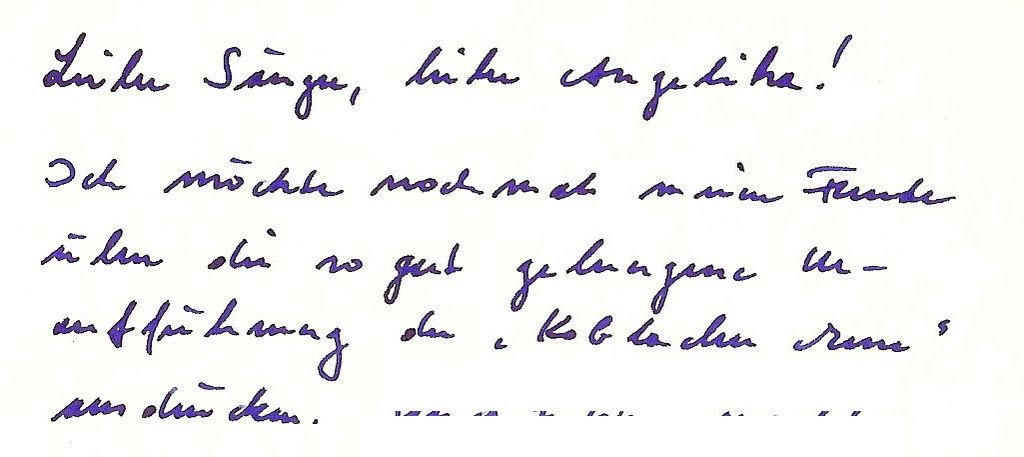 Liebe Sänger, liebe Angelika!
Ich möchte nochmals meine Freude
über die so gut gelungene Ur-
aufführung der „Koblacher
ausdrücken.